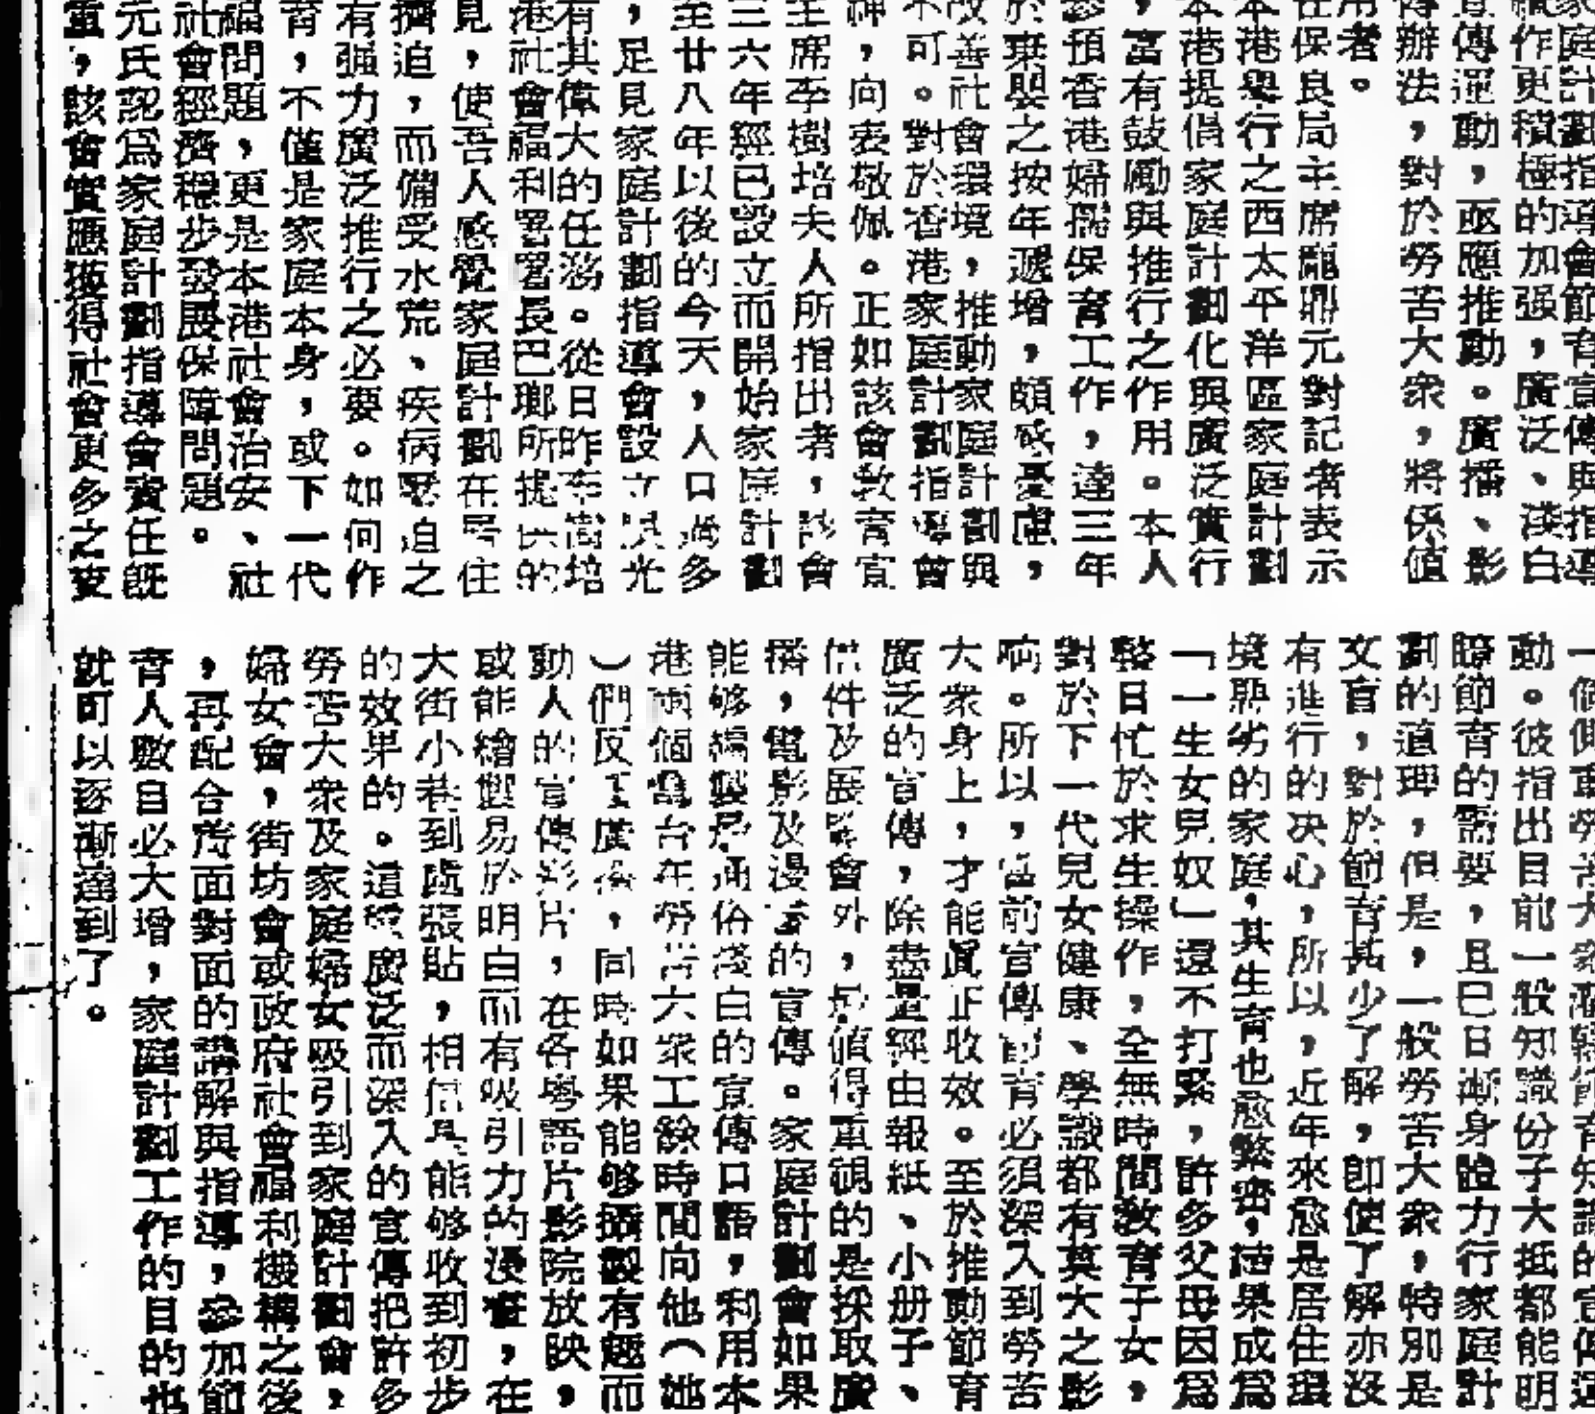 家庭計劃指導會節育宣傳與指導
續作更積極的加强,廣泛、淺白
宣傳運動,亟應推動。廣播、影
得辦法,對於勞苦大衆,將係值
用者。
在保良局主席龐鼎元對記者表示
本港舉行之西太平洋區家庭計劃
本港提倡家庭計劃化與廣泛實行
,富有鼓勵與推行之作用。本人
參預香港婦孺保育工作,達三年
於棄嬰之按年遞增,頗感憂慮,
改善社會環境,推動家庭計劃與
不可。對於香港家庭計劃指導會
神,向表敬佩。正如該會敎育宣
主席李樹培夫人所指出者,該會
三六年經已設立而開始家庭計劃
至廿八年以後的今天,人口過多
,足見家庭計劃指導會設立光
有其偉大的任務。從日昨李樹培
港社會福利署署長巴瑯所提供的
見,使吾人感覺家庭計劃在居住
擠迫,而備受水荒、疾病壓迫之
有强力廣泛推行之必要。如何作
育,不僅是家庭本身,或下一代
福問題,更是本港社會治安、社
社會經濟穩步發展保障問題。
元氏認爲家庭計劃指導會責任旣
重,該會實應獲得社會更多之支
一個側重勞苦大衆灌輸節育知識的宣傳運
動。彼指出目前一般知識份子大抵都能明
瞭節育的需要,且已日漸身體力行家庭計
劃的道理,但是,一般勞苦大衆,特別是
文盲,對於節育甚少了解,卽使了解亦沒
有進行的决心,所以,近年來愈是居住環
境惡劣的家庭,其生育也愈繁密,結果成爲
「一生女兒奴」還不打緊,許多父母因爲
整日忙於求生操作,全無時間敎育子女,
對於下一代兒女健康、學識都有莫大之影
响。所以,當前宣傳節育必須深入到勞苦
大衆身上,才能眞正收效。至於推動節育
廣泛的宣傳,除盡量經由報紙、小册子、
信件及展覽會外,最値得重視的是採取廣
播,電影及漫畫的宣傳。家庭計劃會如果
能够編製最通俗淺白的宣傳口語,利用本
港兩個電台在勞苦大衆工餘時間向他(她
)們反覆廣播,同時如果能够攝製有趣而
動人的宣傳影片,在各粤語片影院放映,
或能繪製易於明白而有吸引力的漫畫,在
大街小巷到處張貼,相信具能够收到初步
的效果的。這樣廣泛而深入的宣傳把許多
勞苦大衆及家庭婦女吸引到家庭計劃會,
婦女會,街坊會或政府社會福利機構之後
,再配合旁面對面的講解與指導,參加節
育人數自必大增,家庭計劃工作的目的也
就可以逐漸達到了。